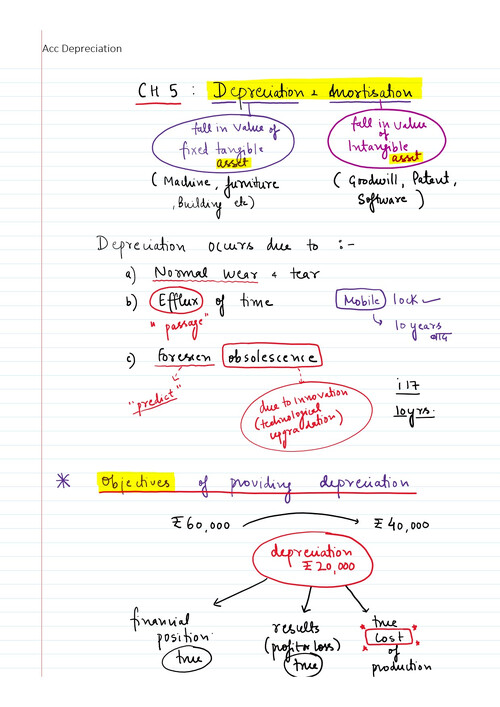 Acc Depreciation
CH 5 : Depreciation & Amortisation
fall in value of
fixed tangible
asset
fall in value
of
Intangible
asset
(Machine, furniture
, Building etc)
(Goodwill, Patent,
Software)
Depreciation occurs due to :-
a) Normal wear & tear
b) Efflux of time
"passage"
Mobile lock
10 years
c) Foreseen obsolescence
"predict"
due to innovation
(technological
upgradation)
i 17
10yrs.
* Objectives of providing depreciation
₹60,000 ₹40,000
depreciation
₹20,000
financial
position
true
results
(profit or loss)
true
true
* cost *
of
production